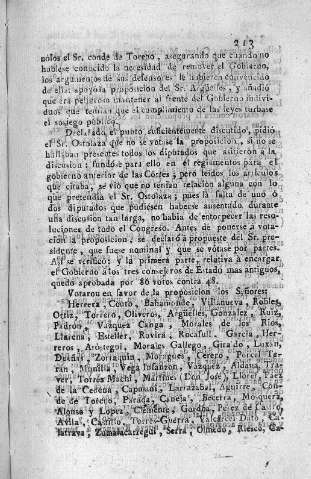 213
nolos el Sr. conde de Toreno, asegurando que cuando no
hubiese conocido la necesidad de remover el Gobierno,
los argumentos de sus defensores le hubieran convencido
de ella: apoyó la proposicion del Sr. Argüelles, y añadió
que era peligroso mantener al frente del Gobierno indivi-
duos que temian que el cumplimiento de las leyes turbase
el sosiego público.
Declarado el punto suficientemente discutido, pidió
el Sr. Ostolaza que no se votase la proposicion, si no se
hallaban presentes todos los diputados que asistieron á la
discusion: fundóse para ello en el reglamento para el
gobierno interior de las Córtes; pero leidos los artículos
que citaba, se vió que no tenian relacion alguna con lo
que pretendia el Sr. Ostolaza; pues la falta de uno ó
dos diputados que pudiesen haberse ausentado durante
una discusion tan larga, no habia de entorpecer las reso-
luciones de todo el Congreso. Antes de ponerse á vota-
cion la proposicion, se declaró á propuesta del Sr. pre-
sidente, que fuese nominal y que se votase por partes.
Así se verificó: y la primera parte, relativa á encargar
el Gobierno á los tres consejeros de Estado mas antiguos,
quedó aprobada por 86 votos contra 48.
Votaron en favor de la proposicion los Señores:
Herrera, Couto, Bahamonde, Villanueva, Robles,
Ortiz, Torrero, Oliveros, Argüelles, Gonzalez, Ruiz,
Padron, Vazquez Canga, Morales de los Rios,
Llarena, Esteller, Rovira, Rocafull, Garcia Her-
reros, Aróstegui, Morales Gallego, Giraldo, Luxan,
Dueñas, Zorraquin, Moragues, Cerero, Porcel, Tar-
ran, Munilla, Vega Infanzon, Vazquez, Aldana, Tra-
ver, Torres Machi, Martinez (Don José), Lloret, Paez
de la Cadena, Capmani, Larrazabal, Aguirre, Con-
de de Toreno, Parada, Caneja, Becerra, Mosquera,
Alonso y Lopez, Clemente, Gordoa, Perez de Castro,
Avila, Castillo, Torres-Guerra, Valcarcel Dato, Ca-
latrava, Zumalacarregui, Serra, Olmedo, Riesco, Ga-